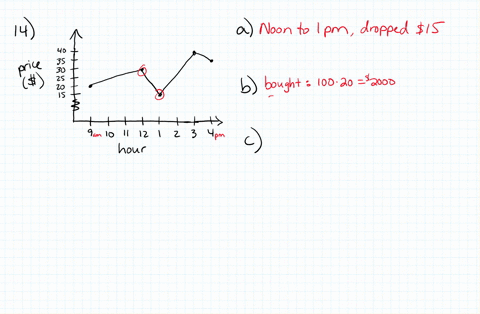 14)
price
($)
40
35
30
25
20
15
9am 10 11 12 1 2 3 4pm
hour
a) Noon to 1pm, dropped $15
b) bought: 100·20 = $2000
c)